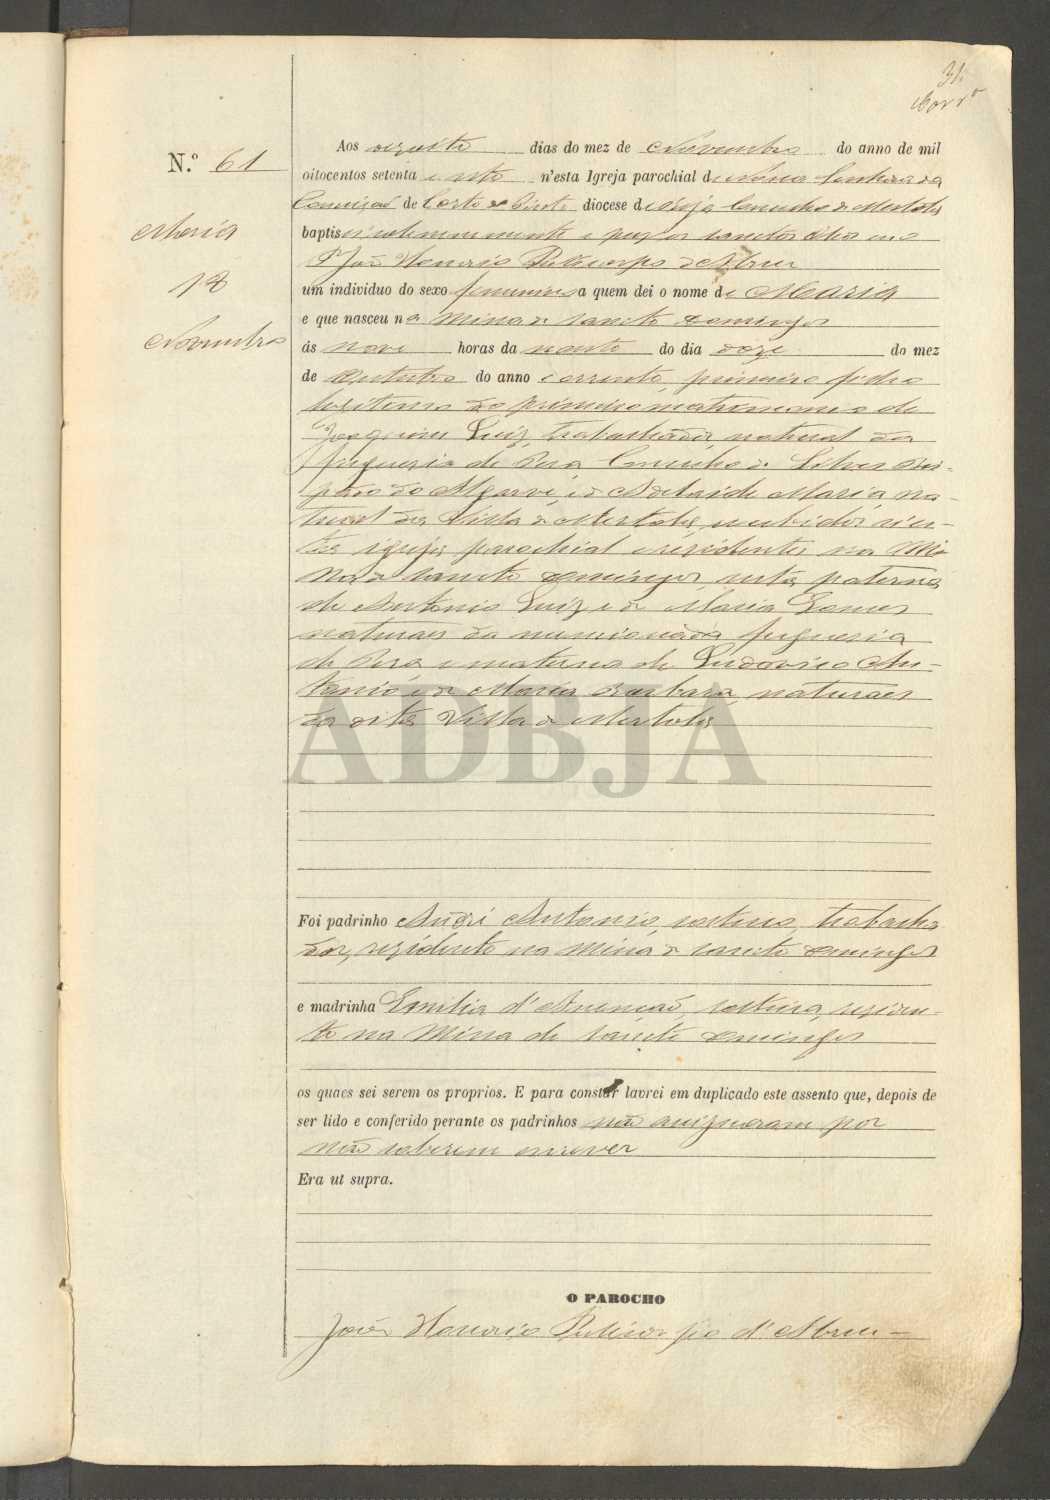 31
Corrº
N.º 61
Maria
18
Novembro
Aos dezoito dias do mez de Novembro do anno de mil
oitocentos setenta e n'esta Igreja parochial de Nossa Senhora da
Conceição de Corte do Pinto diocese de Beja Concelho de Mertola
baptisei solemnemente e puz os sanctos oleos eu o
Pe João Honorio Policarpo d'Abreu
um individuo do sexo feminino a quem dei o nome de Maria
e que nasceu na Mina de sancto Domingos
ás nove horas da noute do dia doze do mez
de Outubro do anno corrente, primeiro filho
legitimo do primeiro matrimonio de
Joaquim Luiz, trabalhador, natural da
freguezia de Pera Concelho de Silves Bis-
pado do Algarve, e de Adelaide Maria na-
tural da Villa de Mertola, recebidos n'es-
ta igreja parochial e residentes na Mi-
na de sancto Domingos, neta paterna
de Antonio Luiz e de Maria Gomes
naturaes da mencionada freguezia
de Pera e materna de Ludovico An-
tonio, e de Maria Barbara, naturaes
da dita Villa de Mertola
ADBJA
Foi padrinho André Antonio, solteiro, trabalha
dor, residente na Mina de sancto Domingos
e madrinha Emilia d'Assumção, solteira, residen-
te na Mina de sancto Domingos
os quaes sei serem os proprios. E para constar lavrei em duplicado este assento que, depois de
ser lido e conferido perante os padrinhos não assignaram por
não saberem escrever
Era ut supra.
O PAROCHO
João Honorio Policarpo d'Abreu